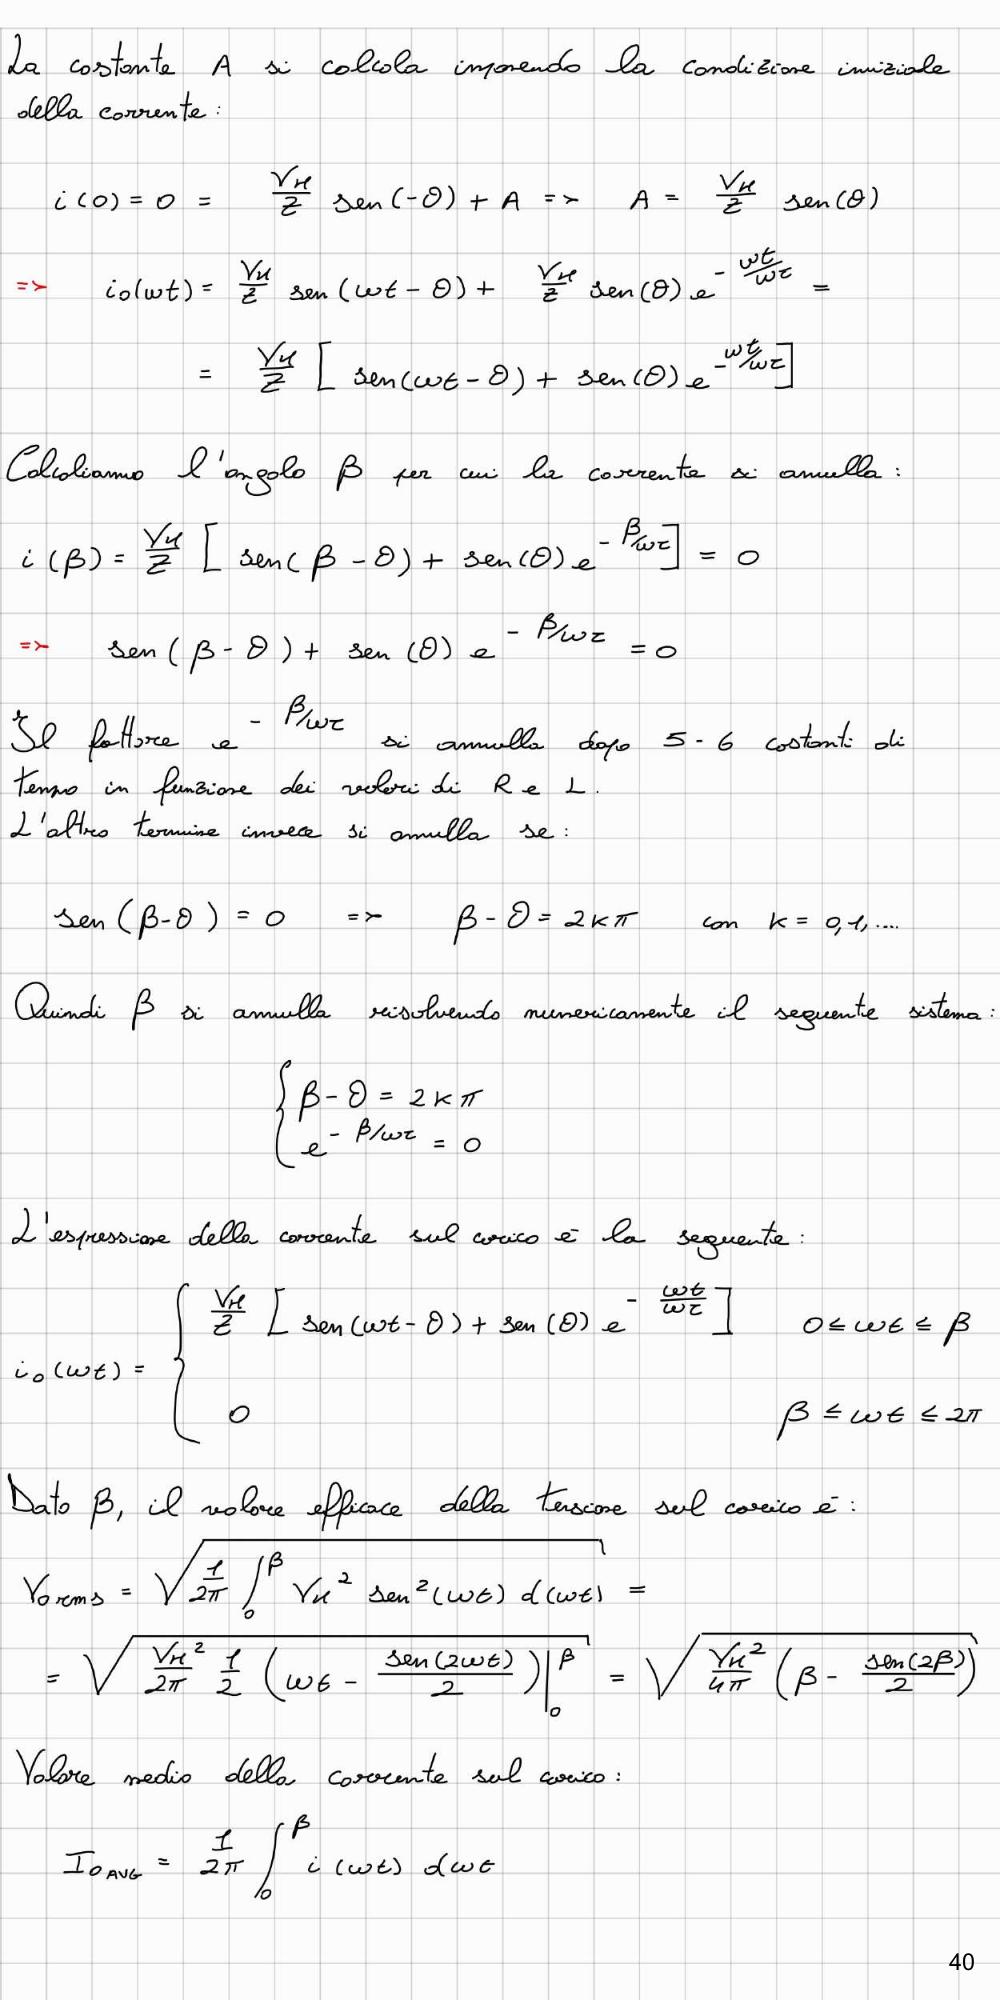 La costante A si calcola imponendo la condizione inniziale
della corrente:
i(0) = 0 = V_M/Z sen(-θ) + A => A = V_M/Z sen(θ)
=> i_0(ωt) = V_M/Z sen(ωt - θ) + V_M/Z sen(θ) e^(-ωt/ωτ) =
= V_M/Z [sen(ωt - θ) + sen(θ) e^(-ωt/ωτ)]
Calcoliamo l'angolo β per cui la corrente si annulla:
i(β) = V_M/Z [sen(β - θ) + sen(θ) e^(-β/ωτ)] = 0
=> sen(β - θ) + sen(θ) e^(-β/ωτ) = 0
Il fattore e^(-β/ωτ) si annulla dopo 5-6 costanti di
tempo in funzione dei valori di R e L.
L'altro termine invece si annulla se:
sen(β-θ) = 0 => β - θ = 2kπ con k = 0,1,....
Quindi β si annulla risolvendo numericamente il seguente sistema:
{ β - θ = 2kπ
e^(-β/ωτ) = 0
L'espressione della corrente sul carico è la seguente:
i_0(ωt) = { V_M/Z [sen(ωt - θ) + sen(θ) e^(-ωt/ωτ)] 0 ≤ ωt ≤ β
0 β ≤ ωt ≤ 2π
Dato β, il valore efficace della tensione sul carico è:
V_0rms = √(1/2π ∫_0^β V_M² sen²(ωt) d(ωt)) =
= √(V_M²/2π 1/2 (ωt - sen(2ωt)/2)|_0^β) = √(V_M²/4π (β - sen(2β)/2))
Valore medio della corrente sul carico:
I_0AVG = 1/2π ∫_0^β i(ωt) dωt
40